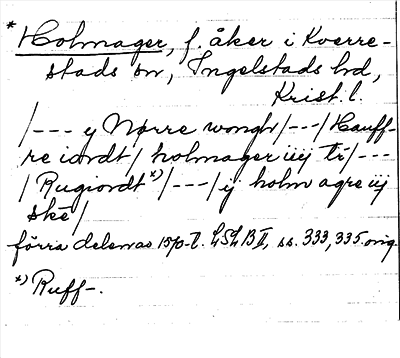 * Holmager, f. åker i Kverre-
stads sn, Ingelstads hd,
Krist. l.
/--- y Nørre wongh/---/Hauff-
re iordt/ holmager iiij tr/---
/Rugiordt *)/---/ij holm agre iij
skē/
förra delen av 1570-t. LSLB II, ss. 333, 335. orig.
*) Ruff-.